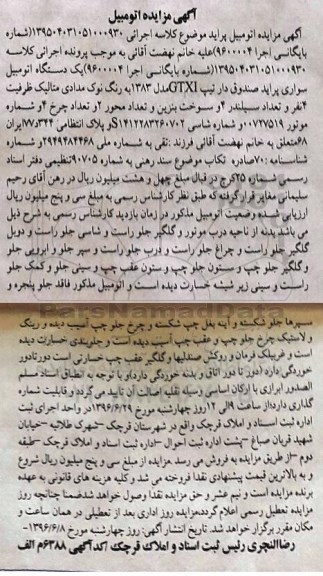 آگهی مزایده اتومبیل
آگهی مزایده اتومبیل پراید موضوع کلاسه اجرائی ۱۳۹۵۰۴۰۳۱۰۵۱۰۰۰۹۳۰(شماره
بایگانی اجرا ۹۶۰۰۰۰۴)علیه خانم نهضت آقائی به موجب پرونده اجرائی کلاسه
۱۳۹۵۰۴۰۳۱۰۵۱۰۰۰۹۳۰(شماره بایگانی اجرا ۹۶۰۰۰۰۴)یک دستگاه اتومبیل
سواری پراید صندوق دار تیپ GTXIمدل ۱۳۸۳به رنگ نوک مدادی متالیک ظرفیت
۴نفر و تعداد سیلندر ۴و سوخت بنزین و تعداد محور ۲و تعداد چرخ ۴و شماره
موتور ۰۰۷۲۷۵۱۹و شماره شاسی S۱۴۱۲۲۸۳۲۶۰۷۰۲و پلاک انتظامی ۳۴۴د۷۷ایران
۶۸متعلق به خانم نهضت آقائی فرزند :تقی به شماره ملی ۲۹۴۹۴۸۴۴۶۸و شماره
شناسنامه :۷۰صادره تکاب موضوع سند رهنی به شماره ۹۰۷۰۵تنظیمی دفتر اسناد
رسمی شماره ۲۵کرج در قبال مبلغ چهل و هشت میلیون ریال در رهن آقای رحیم
سلیمانی مغایر قرار گرفته که طبق نظر کارشناس رسمی به مبلغ سی و پنج میلیون ریال
ارزیابی شده وضعیت اتومبیل مذکور در زمان بازدید کارشناس رسمی به شرح ذیل
می باشد بدنه از ناحیه درب موتور و گلگیر جلو راست و شاسی جلو راست و دوبل
گلگیر جلو راست و چراغ جلو راست و درب جلو راست و سپر جلو و ابرویی جلو
و گلگیر جلو چپ و ستون جلو چپ و ستون عقب چپ و سینی جلو و کمک جلو
راست و سینی زیر شیشه خسارت دیده است و اتومبیل مذکور فاقد جلو پنجره و
سپرها جلو شکسته و آینه بغل چپ شکسته و چرخ جلو چپ آسیب دیده و رینگ
و لاستیک چرخ جلو چپ و عقب چپ آسیب دیده است و جلوبندی خسارت دیده
است و غربیلک فرمان و روکش صندلیها و گلگیر عقب چپ خسارتی است دورتادور
خوردگی دارد (دور تا دور اتاق و بدنه خوردگی دارد)و با توجه به انطباق اسناد مسلم
الصدور ابرازی با ارکان اساسی رسیله نقلیه اصالت آن تایید می گردد و قابلیت شماره
گذاری دارداز ساعت ۹الی ۱۲روز چهارشنبه مورخ ۱۳۹۶/۶/۲۹در واحد اجرای ثبت
اداره ثبت اسناد و املاک قرچک واقع در شهرستان قرچک –شهرک طلائیه –خیابان
شهید قربان صباغ –پشت اداره ثبت احوال –اداره ثبت اسناد و املاک قرچک –طبقه
دوم –از طریق مزایده به فروش می رسد مزایده از مبلغ سی و پنج میلیون ریال شروع
و به بالاترین قیمت پیشنهادی نقدا فروخته می شد و کلیه هزینه های قانونی به عهده
برنده مزایده است و نیم عشر و حق مزایده نقدا وصول خواهد شدضمنا چنانچه روز
مزایده تعطیل رسمی اعلام گرددمزایده روز اداری بعد از تعطیلی در همان ساعت و
مکان مقرر برگزار خواهد شد. تاریخ انتشار آگهی: روز چهارشنبه مورخ ۱۳۹۶/۶/۸-
رضاالنجری رئیس ثبت اسناد و املاک قرچک /کدآگهی ۶۳۸۸م الف